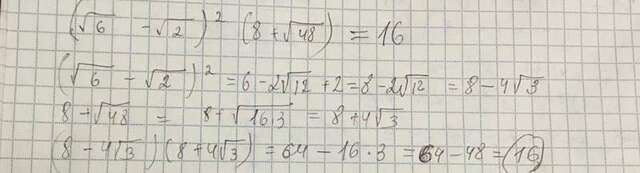 (√6 - √2)² (8 + √48) = 16
(√6 - √2)² = 6 - 2√12 + 2 = 8 - 2√12 = 8 - 4√3
8 + √48 = 8 + √16·3 = 8 + 4√3
(8 - 4√3)(8 + 4√3) = 64 - 16·3 = 64 - 48 = 16